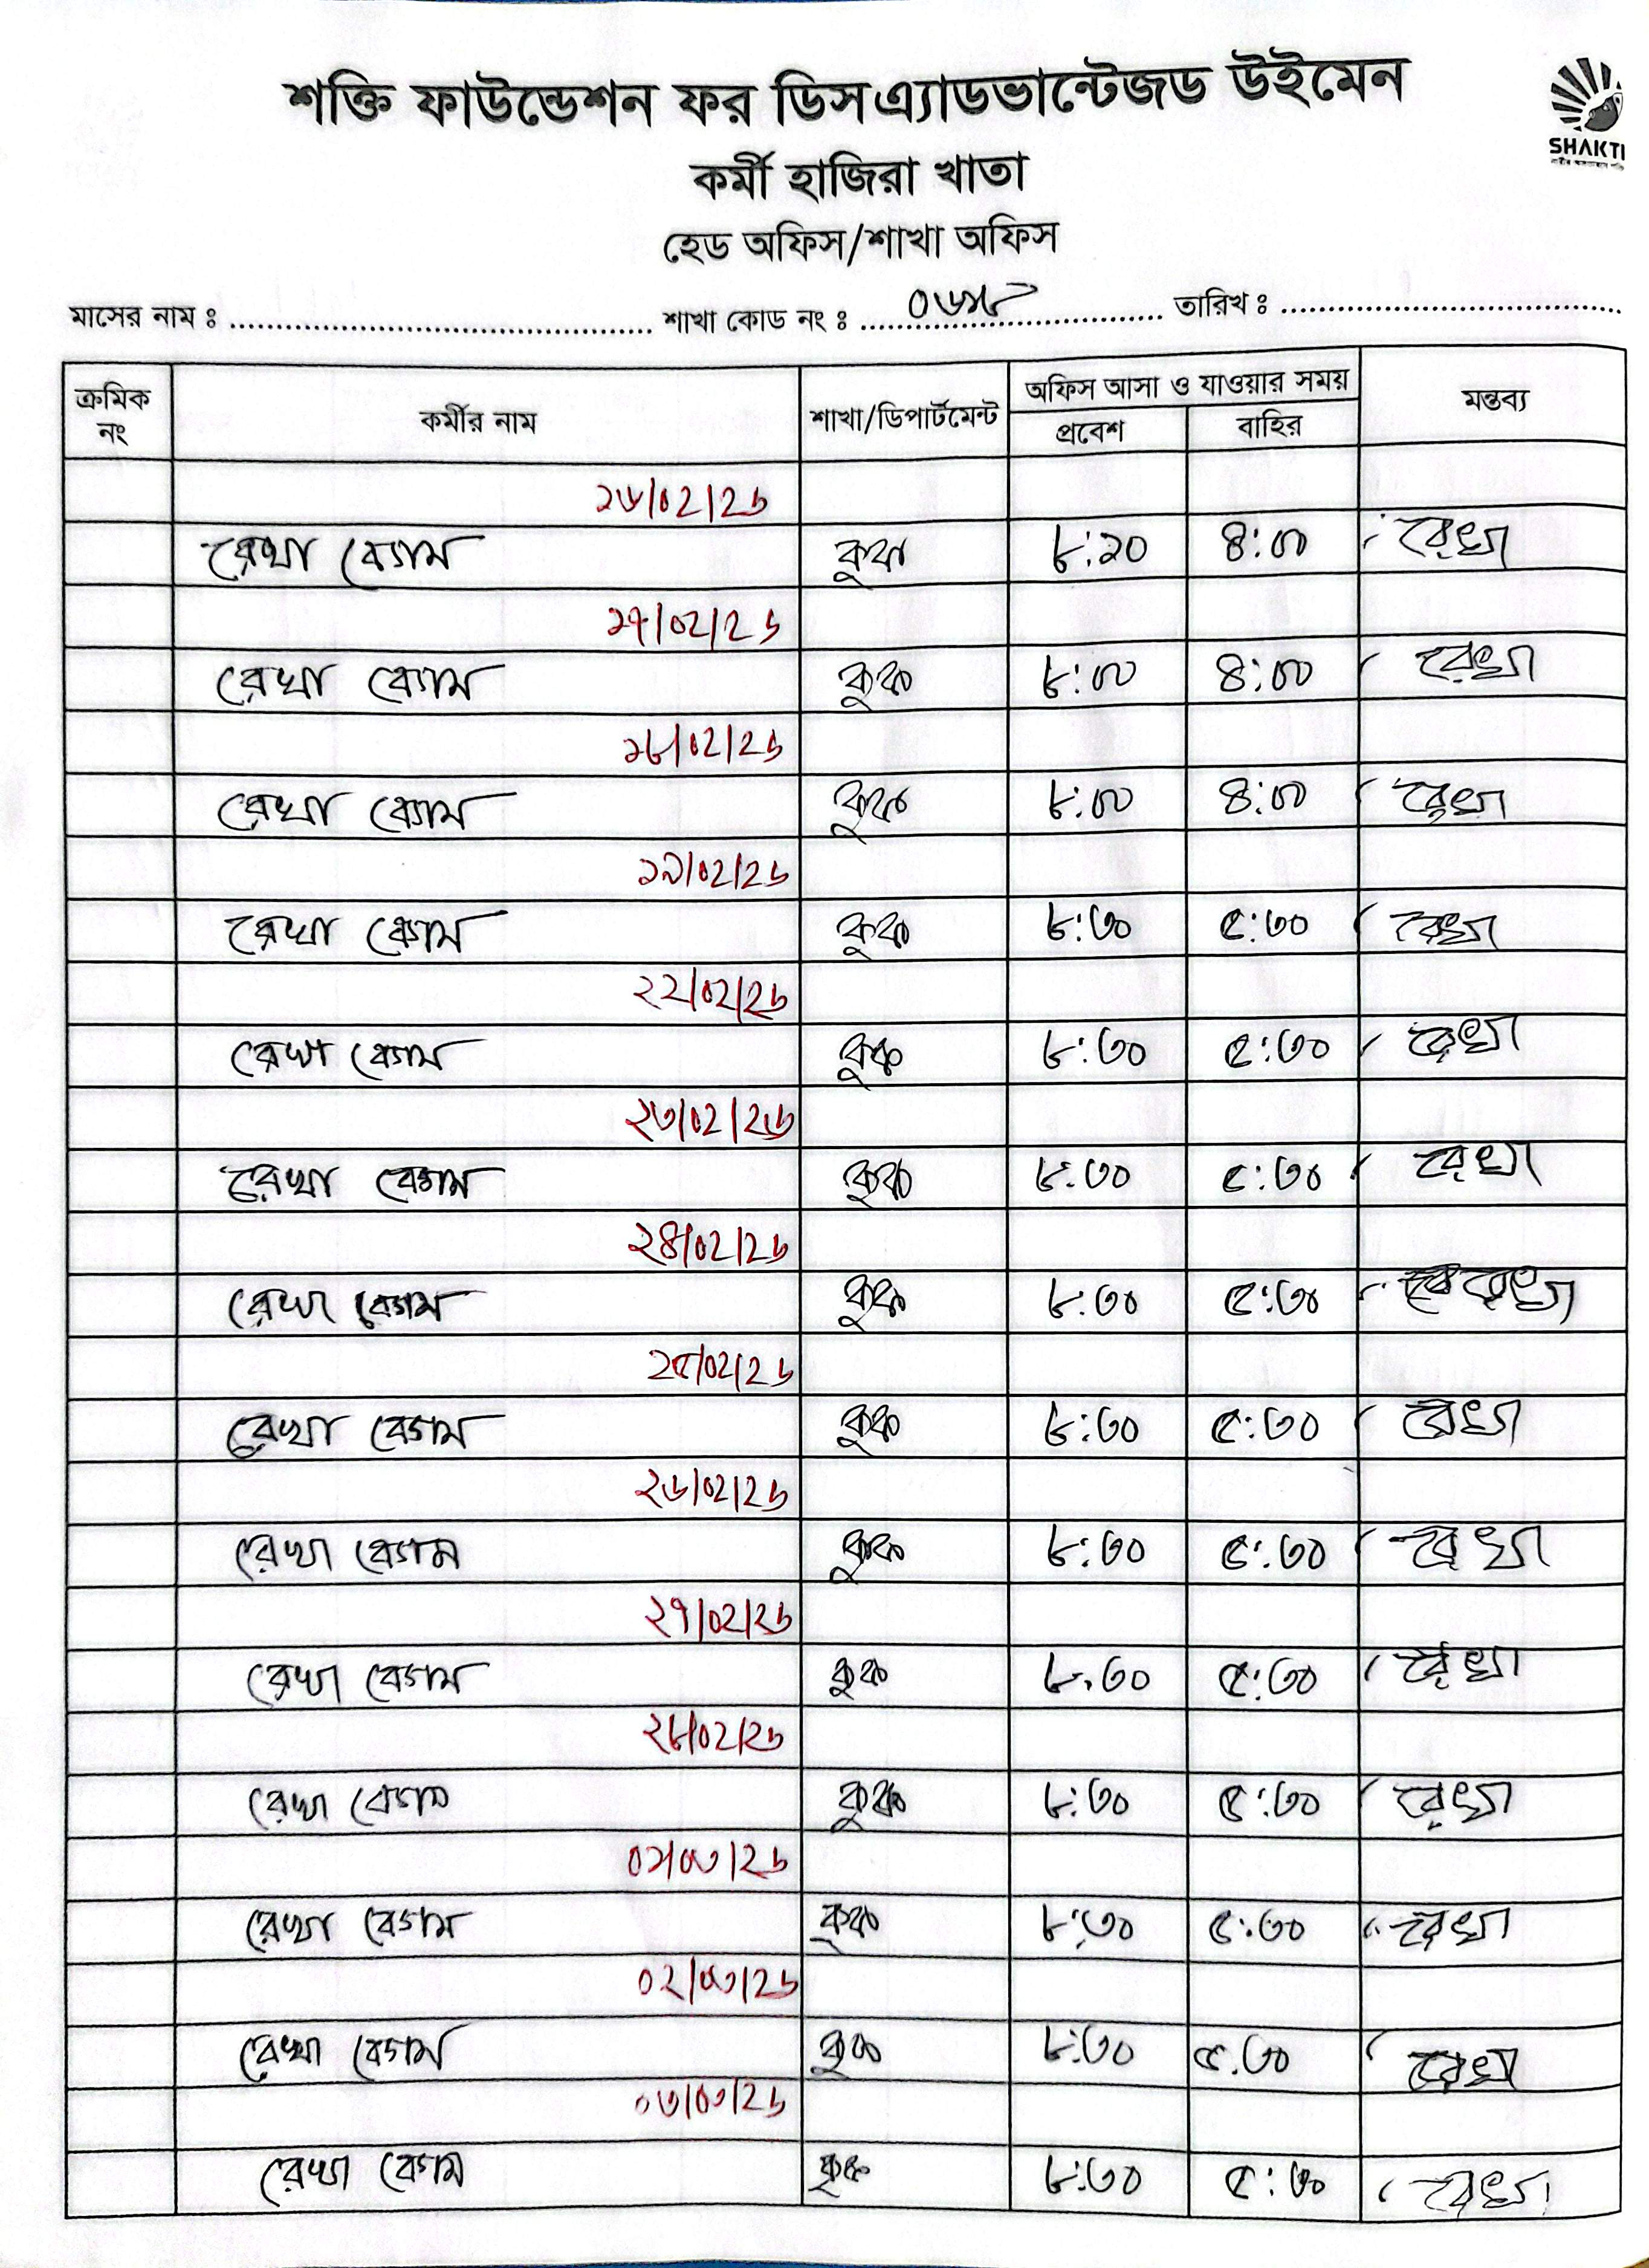 শক্তি ফাউন্ডেশন ফর ডিসএ্যাডভান্টেজড উইমেন
SHAKTI
কর্মী হাজিরা খাতা
হেড অফিস/শাখা অফিস
মাসের নাম ঃ শাখা কোড নং ঃ তারিখ ঃ
ক্রমিক নং কর্মীর নাম শাখা/ডিপার্টমেন্ট অফিস আসা ও যাওয়ার সময় মন্তব্য
প্রবেশ বাহির
১৬/০২/২৬
রেখা বেগম কুক ৮:২০ ৪:০০ রেখা
১৭/০২/২৬
রেখা বেগম কুক ৮:০০ ৪:০০ রেখা
১৮/০২/২৬
রেখা বেগম কুক ৮:০০ ৪:০০ রেখা
১৯/০২/২৬
রেখা বেগম কুক ৮:৩০ ৫:৩০ রেখা
২২/০২/২৬
রেখা বেগম কুক ৮:৩০ ৫:৩০ রেখা
২৩/০২/২৬
রেখা বেগম কুক ৮:৩০ ৫:৩০ রেখা
২৪/০২/২৬
রেখা বেগম কুক ৮:৩০ ৫:৩০ রেখা
২৫/০২/২৬
রেখা বেগম কুক ৮:৩০ ৫:৩০ রেখা
২৬/০২/২৬
রেখা বেগম কুক ৮:৩০ ৫:৩০ রেখা
২৭/০২/২৬
রেখা বেগম কুক ৮:৩০ ৫:৩০ রেখা
২৮/০২/২৬
রেখা বেগম কুক ৮:৩০ ৫:৩০ রেখা
০১/০৩/২৬
রেখা বেগম কুক ৮:৩০ ৫:৩০ রেখা
০২/০৩/২৬
রেখা বেগম কুক ৮:৩০ ৫.৩০ রেখা
০৩/০৩/২৬
রেখা বেগম কুক ৮:৩০ ৫:৩০ রেখা